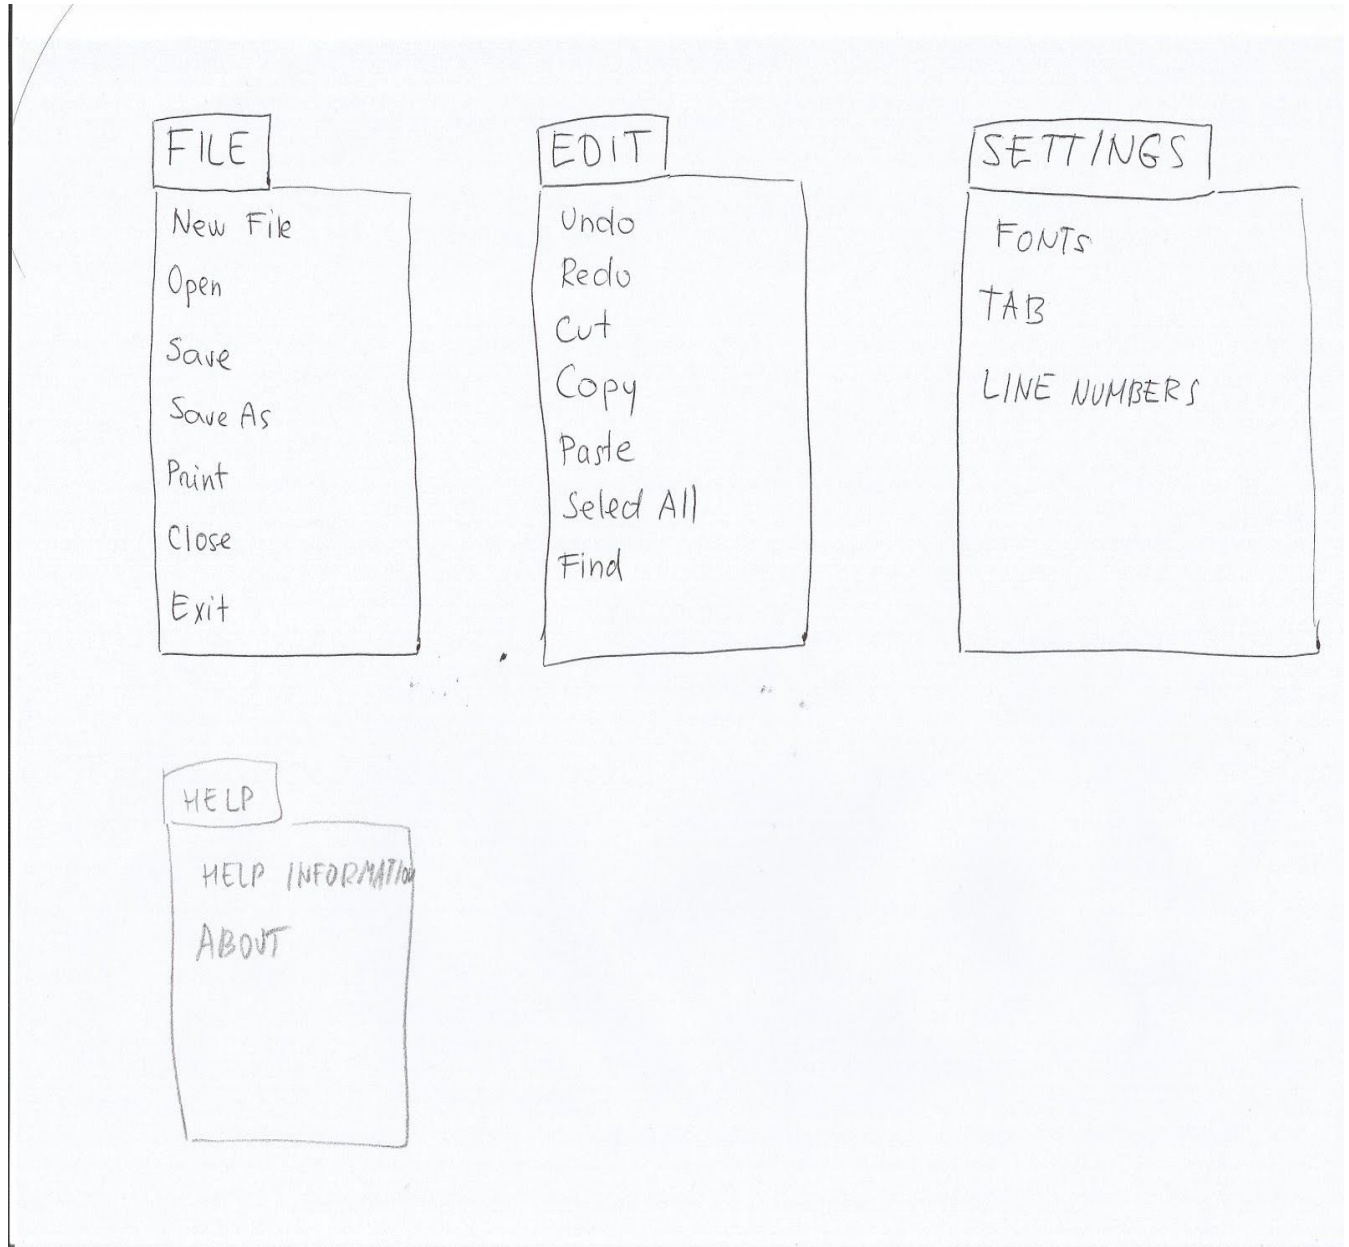 FILE
New File
Open
Save
Save As
Print
Close
Exit
EDIT
Undo
Redo
Cut
Copy
Paste
Select All
Find
SETTINGS
FONTS
TAB
LINE NUMBERS
HELP
HELP INFORMATION
ABOUT